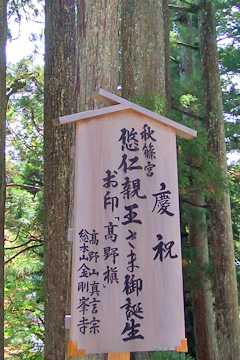 慶祝
秋篠宮
悠仁親王さま御誕生
お印「高野槇」
高野山真言宗
総本山金剛峯寺